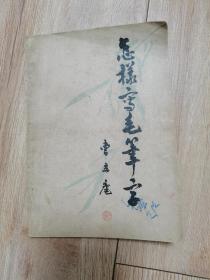 怎樣寫毛筆字
曹立庵